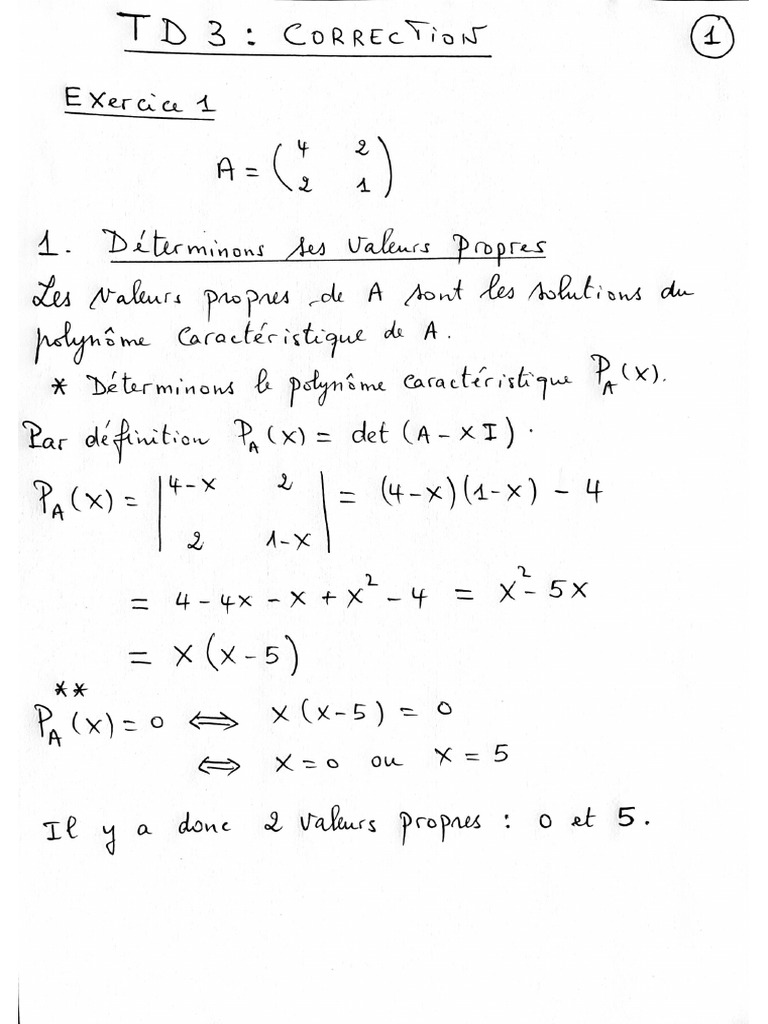 TD3 : CORRECTION
1
Exercice 1
A = ( 4 2
2 1 )
1. Déterminons ses valeurs propres
Les valeurs propres de A sont les solutions du
polynôme caractéristique de A.
* Déterminons le polynôme caractéristique P_A(X).
Par définition P_A(X) = det (A - XI).
P_A(X) = | 4-X 2
2 1-X | = (4-X)(1-X) - 4
= 4 - 4X - X + X² - 4 = X² - 5X
= X(X-5)
**
P_A(X) = 0 ⟺ X(X-5) = 0
⟺ X = 0 ou X = 5
Il y a donc 2 valeurs propres : 0 et 5.